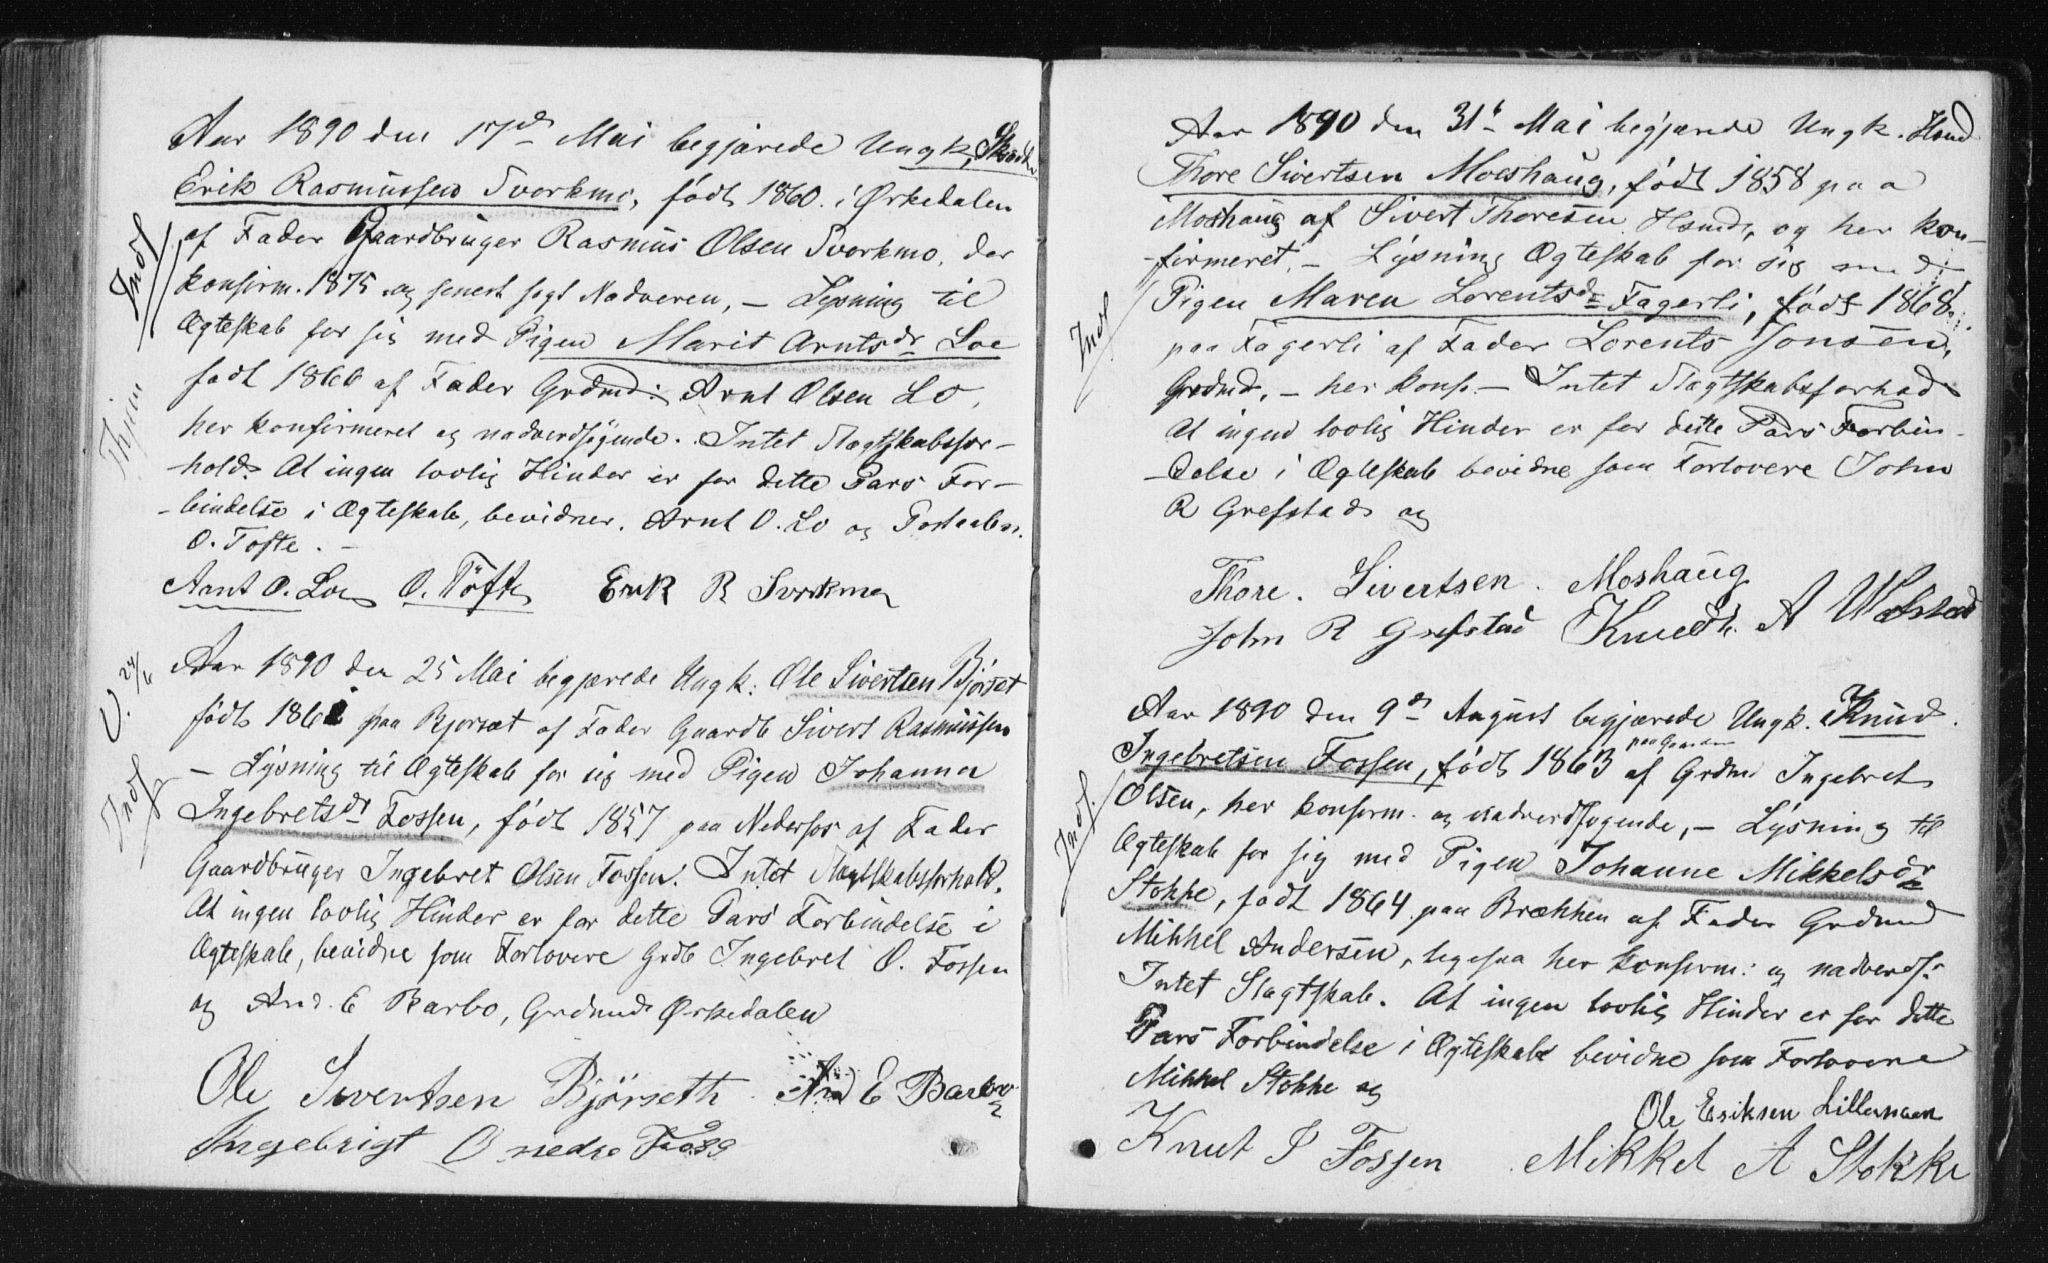 Aar 1890 den 17de Mai begjærede Ungk.
Erik Rasmussen Svorkmo, født 1860 i Ørkedalen
af Fader Gaardbruger Rasmus Olsen Svorkmo, der
konfirm. 1875 og senest søgt Nadveren, – Lysning til
Ægteskab for sig med Pigen Marit Arntsdr Loe
født 1866 af Fader Grdmd: Arnt Olsen Lo,
her konfirmeret og nadverdsøgende. Intet Slagtskabsfor-
-hold. At ingen lovlig Hinder er for dette Pars For-
-bindelse i Ægteskab, bevidner. Arnt O. Lo og
O. Tofte. –
Arnt O. Loe O. Tøfte Erik R Svorkmo
Indf
V. 24/6
Aar 1890 den 25 Mai begjærede Ungk: Ole Sivertsen Bjørset
født 1861 paa Bjorset af Fader Gaardb Sivert Rasmussen
– Lysning til Ægteskab for sig med Pigen Johanna
Ingebretsdr Fossen, født 1857 paa Nederfos af Fader
Gaardbruger Ingebret Olsen Fossen. Intet Slagtskabsforhold.
At ingen lovlig Hinder er for dette Pars Forbindelse i
Ægteskab, bevidne som Forlovere Grdb Ingebret O. Fossen
og And. E Barbo, Grdmd Ørkedalen
Indf
Ole Sivertsen Bjørseth And E Barbo
Ingebrigt O nedre Foss
Aar 1890 den 31te Mai begjærede Ungk. Hsmd
Thore Sivertsen Moeshaug, født 1858 paa
Moshaug af Sivert Thoresen Hsmd, og her kon-
-firmeret, – Lysning Ægteskab for sig med
Pigen Maren Lorentsdr Fagerli, født 1868
paa Fagerli af Fader Lorents Jonsen,
Grdmd, – her konf. – Intet Slagtskabsforhad
At ingen lovlig Hinder er for dette Pars Forbin-
-delse i Ægteskab bevidne som Forlovere John
R Grefstad og
Indf
Thore. Sivertsen. Moshaug
John R Grefstad Knudt. A
Aar 1890 den 9de August begjærede Ungk. Knud
paa Gaarden
Ingebretsen Fossen, født 1863 af Grdmd Ingebret
Olsen, her konferm. og nadverdsøgende, – Lysning til
Ægteskab for sig med Pigen Johanne Mikkelsdr
Stokke, født 1864 paa Brækken af Fader Grdmd
Mikkel Andersen, ligesaa her konferm: og nadverds:
Intet Slagtskab. At ingen lovlig Hinder er for dette
Pars Forbindelse i Ægteskab bevidne som Forlovere
Mikkel Stokke og
Indf.
Ole Eriksen Lillemoen
Knut I Fossen Mikkel A Stokke